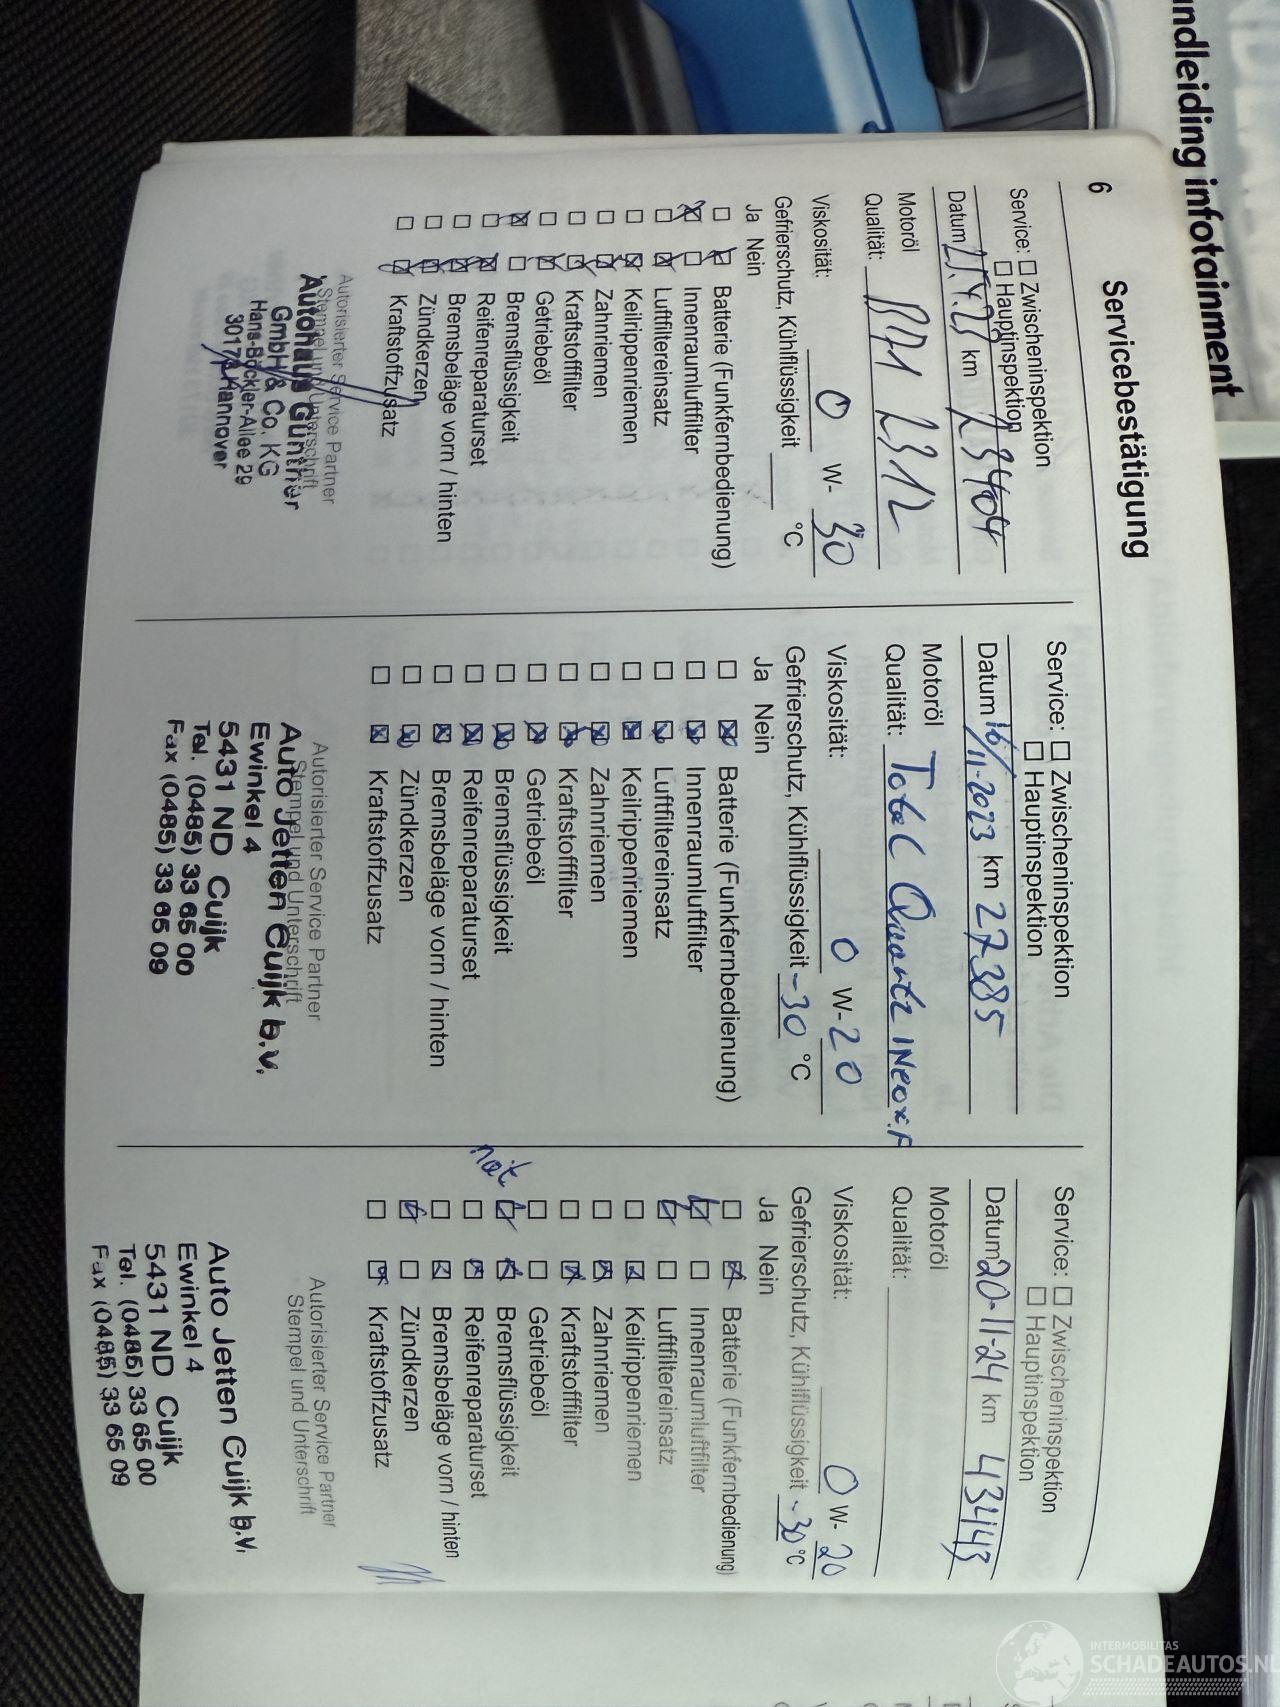 ndleiding infotainment
6
Servicebestätigung
Service: Zwischeninspektion
Hauptinspektion
Datum km 23404
Motoröl
Qualität:
Viskosität: 0 W- 30
Gefrierschutz, Kühlflüssigkeit °C
Ja Nein
Batterie (Funkfernbedienung)
Innenraumluftfilter
Luftfiltereinsatz
Keilrippenriemen
Zahnriemen
Kraftstofffilter
Getriebeöl
Bremsflüssigkeit
Reifenreparaturset
Bremsbeläge vorn / hinten
Zündkerzen
Kraftstoffzusatz
Autorisierter Service Partner
Stempel und Unterschrift
Autohaus Günther
GmbH & Co. KG
Hans-Böckler-Allee 29
30173 Hannover
Service: Zwischeninspektion
Hauptinspektion
Datum 16/11-2023 km 27385
Motoröl
Qualität: Total Quartz INEO X.F
Viskosität: 0 W- 20
Gefrierschutz, Kühlflüssigkeit -30 °C
Ja Nein
Batterie (Funkfernbedienung)
Innenraumluftfilter
Luftfiltereinsatz
Keilrippenriemen
Zahnriemen
Kraftstofffilter
Getriebeöl
Bremsflüssigkeit
Reifenreparaturset
Bremsbeläge vorn / hinten
Zündkerzen
Kraftstoffzusatz
Autorisierter Service Partner
Stempel und Unterschrift
Auto Jetten Cuijk b.v.
Ewinkel 4
5431 ND Cuijk
Tel. (0485) 33 65 00
Fax (0485) 33 65 09
Service: Zwischeninspektion
Hauptinspektion
Datum 20-11-24 km 43443
Motoröl
Qualität:
Viskosität: 0 W- 20
Gefrierschutz, Kühlflüssigkeit -30 °C
Ja Nein
Batterie (Funkfernbedienung)
Innenraumluftfilter
Luftfiltereinsatz
Keilrippenriemen
Zahnriemen
Kraftstofffilter
Getriebeöl
Bremsflüssigkeit
Reifenreparaturset
Bremsbeläge vorn / hinten
Zündkerzen
Kraftstoffzusatz
Autorisierter Service Partner
Stempel und Unterschrift
Auto Jetten Cuijk b.v.
Ewinkel 4
5431 ND Cuijk
Tel. (0485) 33 65 00
Fax (0485) 33 65 09
INTERMOBILITAS
SCHADEAUTOS.NL